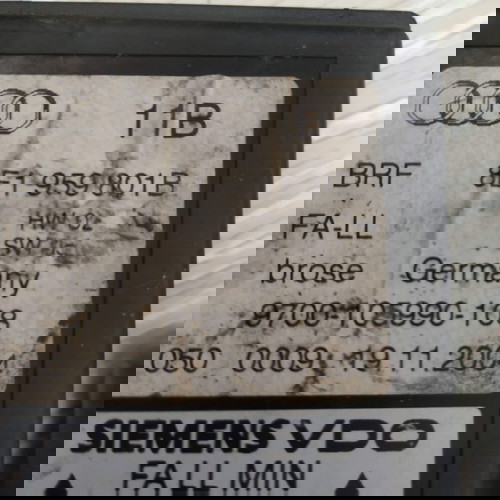 11B
BRF 8E1 959 801 B
HW 02
SW
FA-LL
brose Germany
9700-105990-108
050 0009 19.11.2001
SIEMENS VDO
FA LL MIN